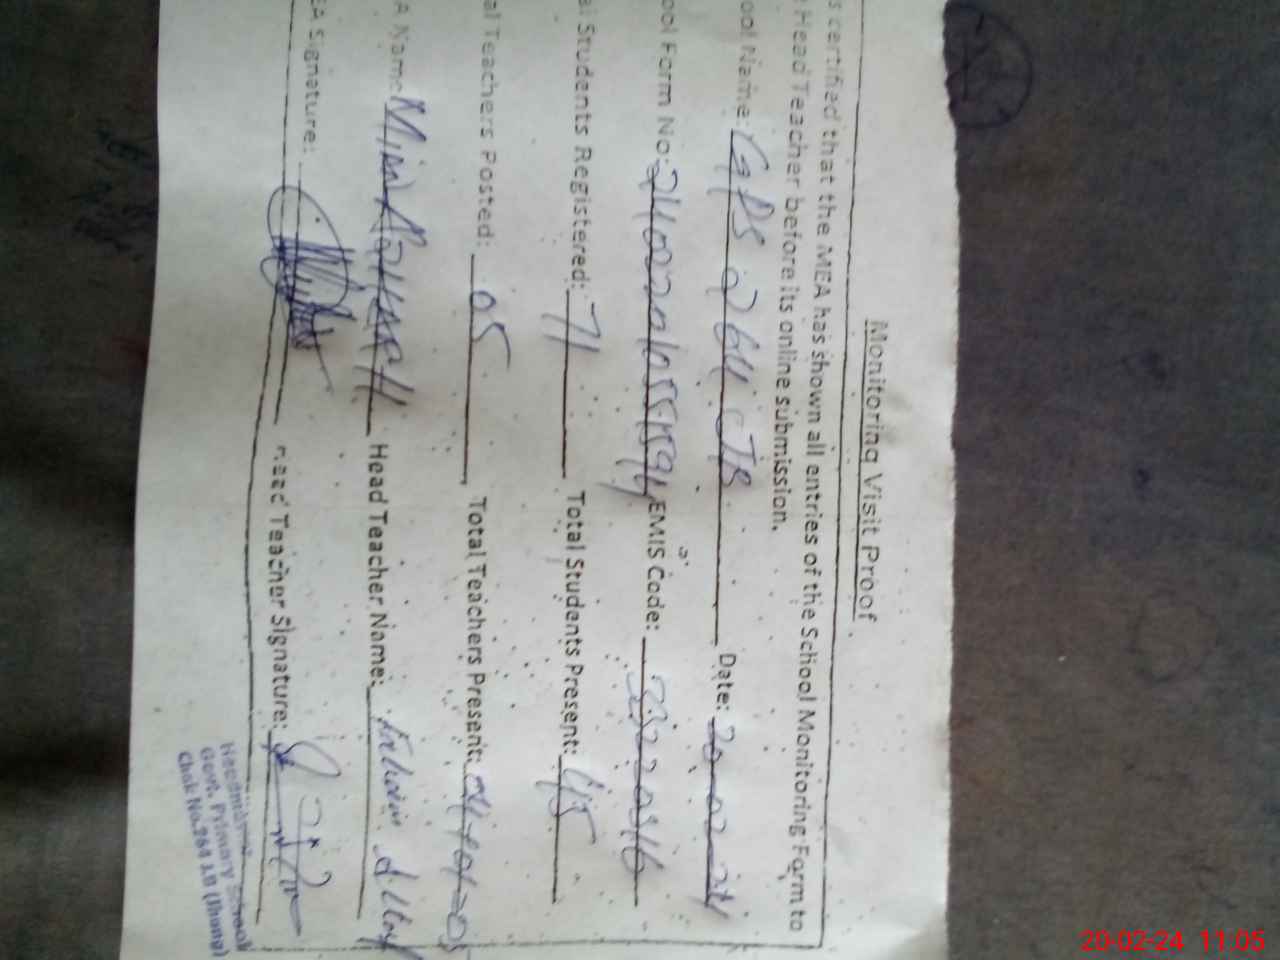 Monitoring Visit Proof
s certified that the MEA has shown all entries of the School Monitoring Form to
Head Teacher before its online submission.
ool Name: GPS 264 JB Date: 20-02-24
ool Form No: EMIS Code:
al Students Registered: 71 Total Students Present: 45
al Teachers Posted: 05 Total Teachers Present: 04+01=05
A Name: Head Teacher Name:
EA Signature: Head Teacher Signature:
Headmaster
Govt. Primary School
Chak No.264 J.B (Jhang)
20-02-24 11:05